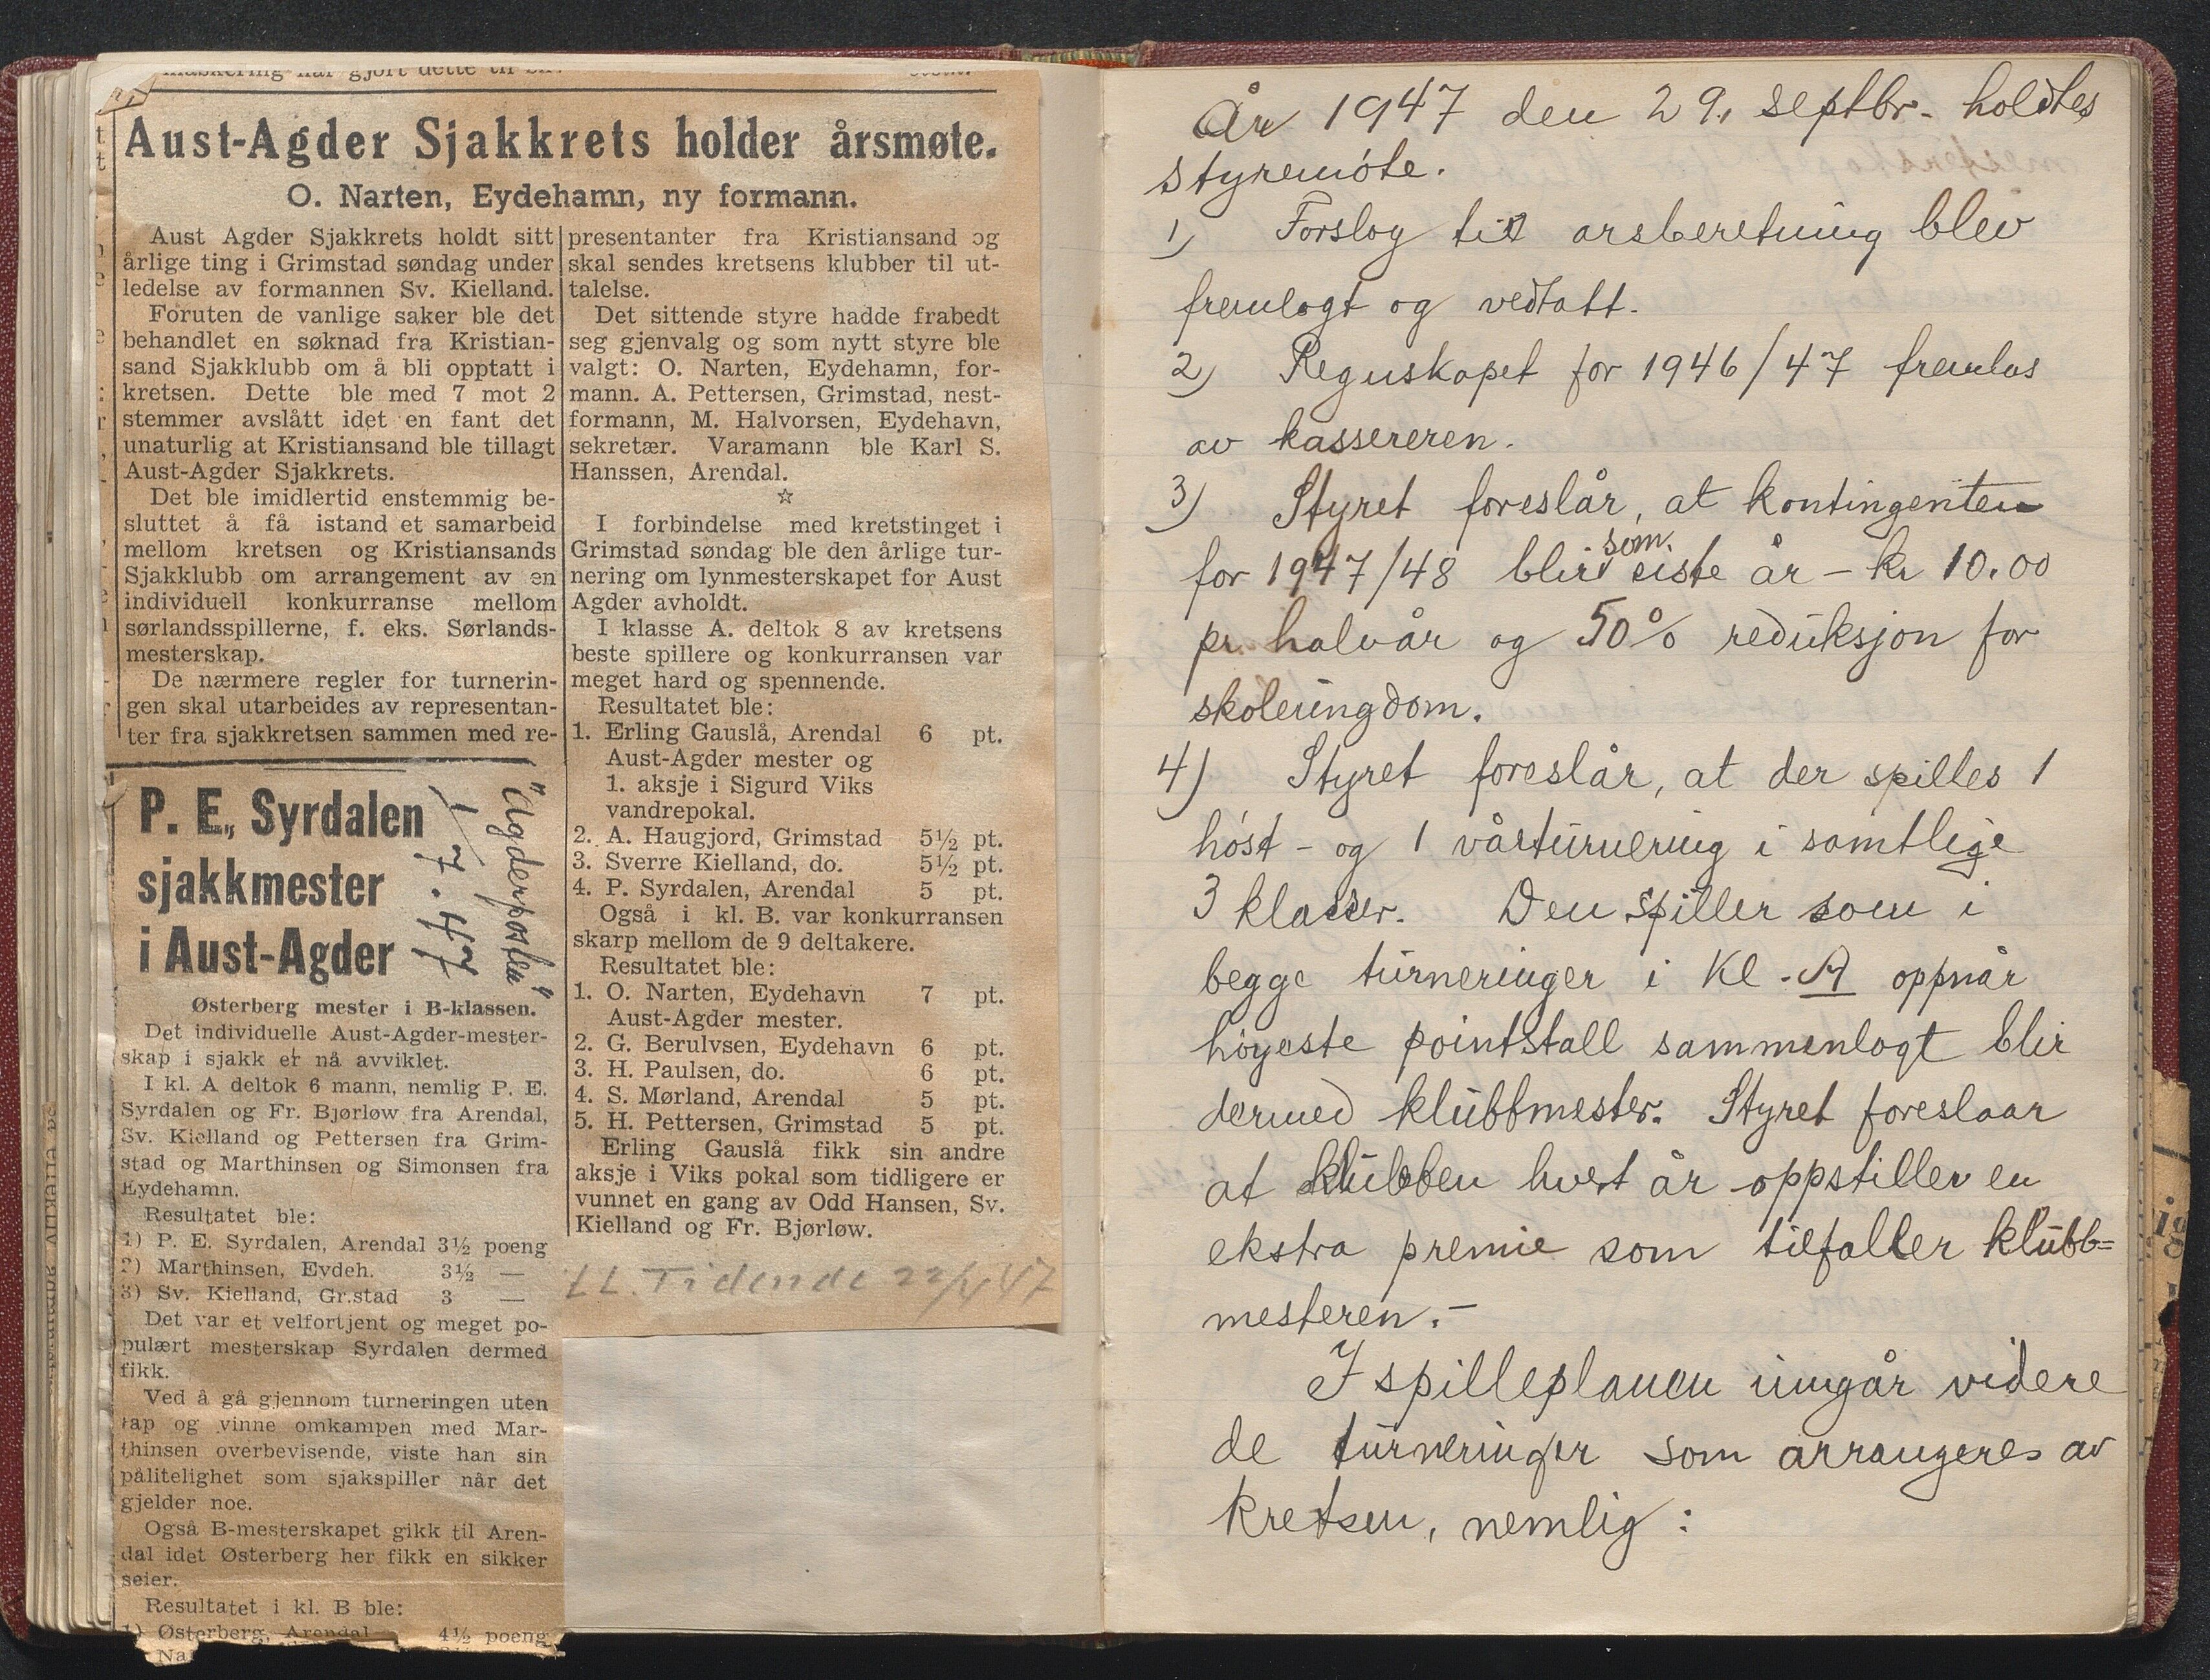 Aust-Agder Sjakkrets holder årsmøte.
O. Narten, Eydehamn, ny formann.
Aust Agder Sjakkrets holdt sitt
årlige ting i Grimstad søndag under
ledelse av formannen Sv. Kielland.
Foruten de vanlige saker ble det
behandlet en søknad fra Kristian-
sand Sjakklubb om å bli opptatt i
kretsen. Dette ble med 7 mot 2
stemmer avslått idet en fant det
unaturlig at Kristiansand ble tillagt
Aust-Agder Sjakkrets.
Det ble imidlertid enstemmig be-
sluttet å få istand et samarbeid
mellom kretsen og Kristiansands
Sjakklubb om arrangement av en
individuell konkurranse mellom
sørlandsspillerne, f. eks. Sørlands-
mesterskap.
De nærmere regler for turnerin-
gen skal utarbeides av representan-
ter fra sjakkretsen sammen med re-
presentanter fra Kristiansand og
skal sendes kretsens klubber til ut-
talelse.
Det sittende styre hadde frabedt
seg gjenvalg og som nytt styre ble
valgt: O. Narten, Eydehamn, for-
mann. A. Pettersen, Grimstad, nest-
formann, M. Halvorsen, Eydehavn,
sekretær. Varamann ble Karl S.
Hanssen, Arendal.
☆
I forbindelse med kretstinget i
Grimstad søndag ble den årlige tur-
nering om lynmesterskapet for Aust
Agder avholdt.
I klasse A. deltok 8 av kretsens
beste spillere og konkurransen var
meget hard og spennende.
Resultatet ble:
1. Erling Gauslå, Arendal 6 pt.
Aust-Agder mester og
1. aksje i Sigurd Viks
vandrepokal.
2. A. Haugjord, Grimstad 5½ pt.
3. Sverre Kielland, do. 5½ pt.
4. P. Syrdalen, Arendal 5 pt.
Også i kl. B. var konkurransen
skarp mellom de 9 deltakere.
Resultatet ble:
1. O. Narten, Eydehavn 7 pt.
Aust-Agder mester.
2. G. Berulvsen, Eydehavn 6 pt.
3. H. Paulsen, do. 6 pt.
4. S. Mørland, Arendal 5 pt.
5. H. Pettersen, Grimstad 5 pt.
Erling Gauslå fikk sin andre
aksje i Viks pokal som tidligere er
vunnet en gang av Odd Hansen, Sv.
Kielland og Fr. Bjørløw.
Tidende 22/4 47
P. E. Syrdalen
sjakkmester
i Aust-Agder
"Agderposten"
1/7. 47
Østerberg mester i B-klassen.
Det individuelle Aust-Agder-mester-
skap i sjakk er nå avviklet.
I kl. A deltok 6 mann, nemlig P. E.
Syrdalen og Fr. Bjørløw fra Arendal,
Sv. Kielland og Pettersen fra Grim-
stad og Marthinsen og Simonsen fra
Eydehamn.
Resultatet ble:
1) P. E. Syrdalen, Arendal 3½ poeng
2) Marthinsen, Eydeh. 3½ —
3) Sv. Kielland, Gr.stad 3 —
Det var et velfortjent og meget po-
pulært mesterskap Syrdalen dermed
fikk.
Ved å gå gjennom turneringen uten
tap og vinne omkampen med Mar-
thinsen overbevisende, viste han sin
pålitelighet som sjakspiller når det
gjelder noe.
Også B-mesterskapet gikk til Aren-
dal idet Østerberg her fikk en sikker
seier.
Resultatet i kl. B ble:
1) Østerberg, Arendal 4½ poeng
År 1947 den 29. septbr. holdtes
styremöte.
1) Forslag til arsberetning blev
fremlagt og vedtatt.
2) Regnskapet for 1946/47 fremlas
av kassereren.
3) Styret foreslår, at kontingenten
for 1947/48 blir som siste år – kr 10.00
pr. halvår og 50% reduksjon for
skoleungdom.
4) Styret foreslår, at der spilles 1
höst- og 1 vårturnering i samtlige
3 klasser. Den spiller som i
begge turneringer i Kl. A oppnår
höyeste pointstall sammenlagt blir
dermed klubbmester. Styret foreslaar
at klubben hvert år oppstiller en
ekstra premie som tilfaller klubb=
mesteren.–
I spilleplanen inngår videre
de turneringer som arrangeres av
kretsen, nemlig: